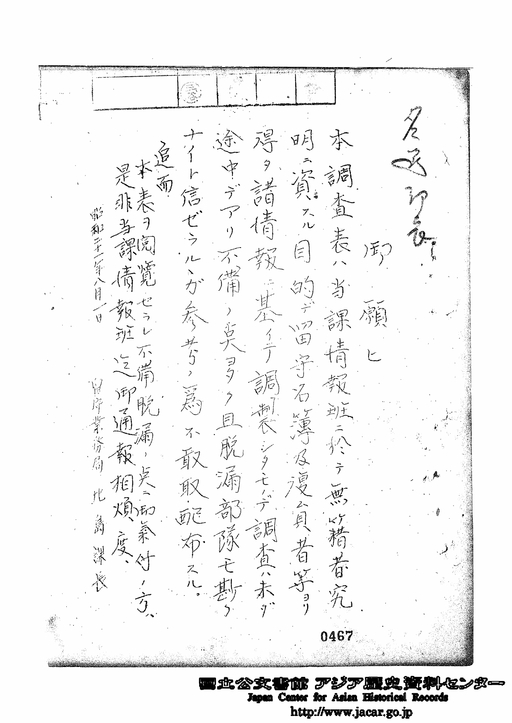 御願ヒ
本調査表ハ当課情報班ニ於テ無籍者究
明ニ資スル目的デ留守名簿及復員者等ヨリ
得タ諸情報ニ基イテ調製シタモノデ調査ハ未ダ
途中デアリ不備ノ点多ク且脱漏部隊モ尠ク
ナイト信ゼラルヽガ参考ノ為不取敢配布スル。
追而
本表ヲ閲覧セラレ不備脱漏ノ点ニ御気付ノ方ハ
是非当課情報班迄御通報相煩度、
昭和二十一年八月一日
留守業務局 課長
0467
国立公文書館 アジア歴史資料センター
Japan Center for Asian Historical Records
http://www.jacar.go.jp